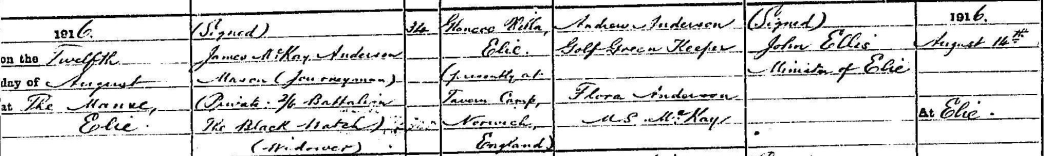 1916.
on the Twelfth
day of August
at The Manse,
Elie.
(Signed)
James McKay Anderson
Mason (Journeyman)
(Private 2/6 Battalion
The Black Watch)
(Widower)
34
Villa,
Elie.
(presently at
Tavern Camp,
Norwich,
England)
Andrew Anderson
Golf Green Keeper
Flora Anderson
M.S. McKay
(Signed)
John Ellis
Minister of Elie
1916.
August 14th
At Elie.